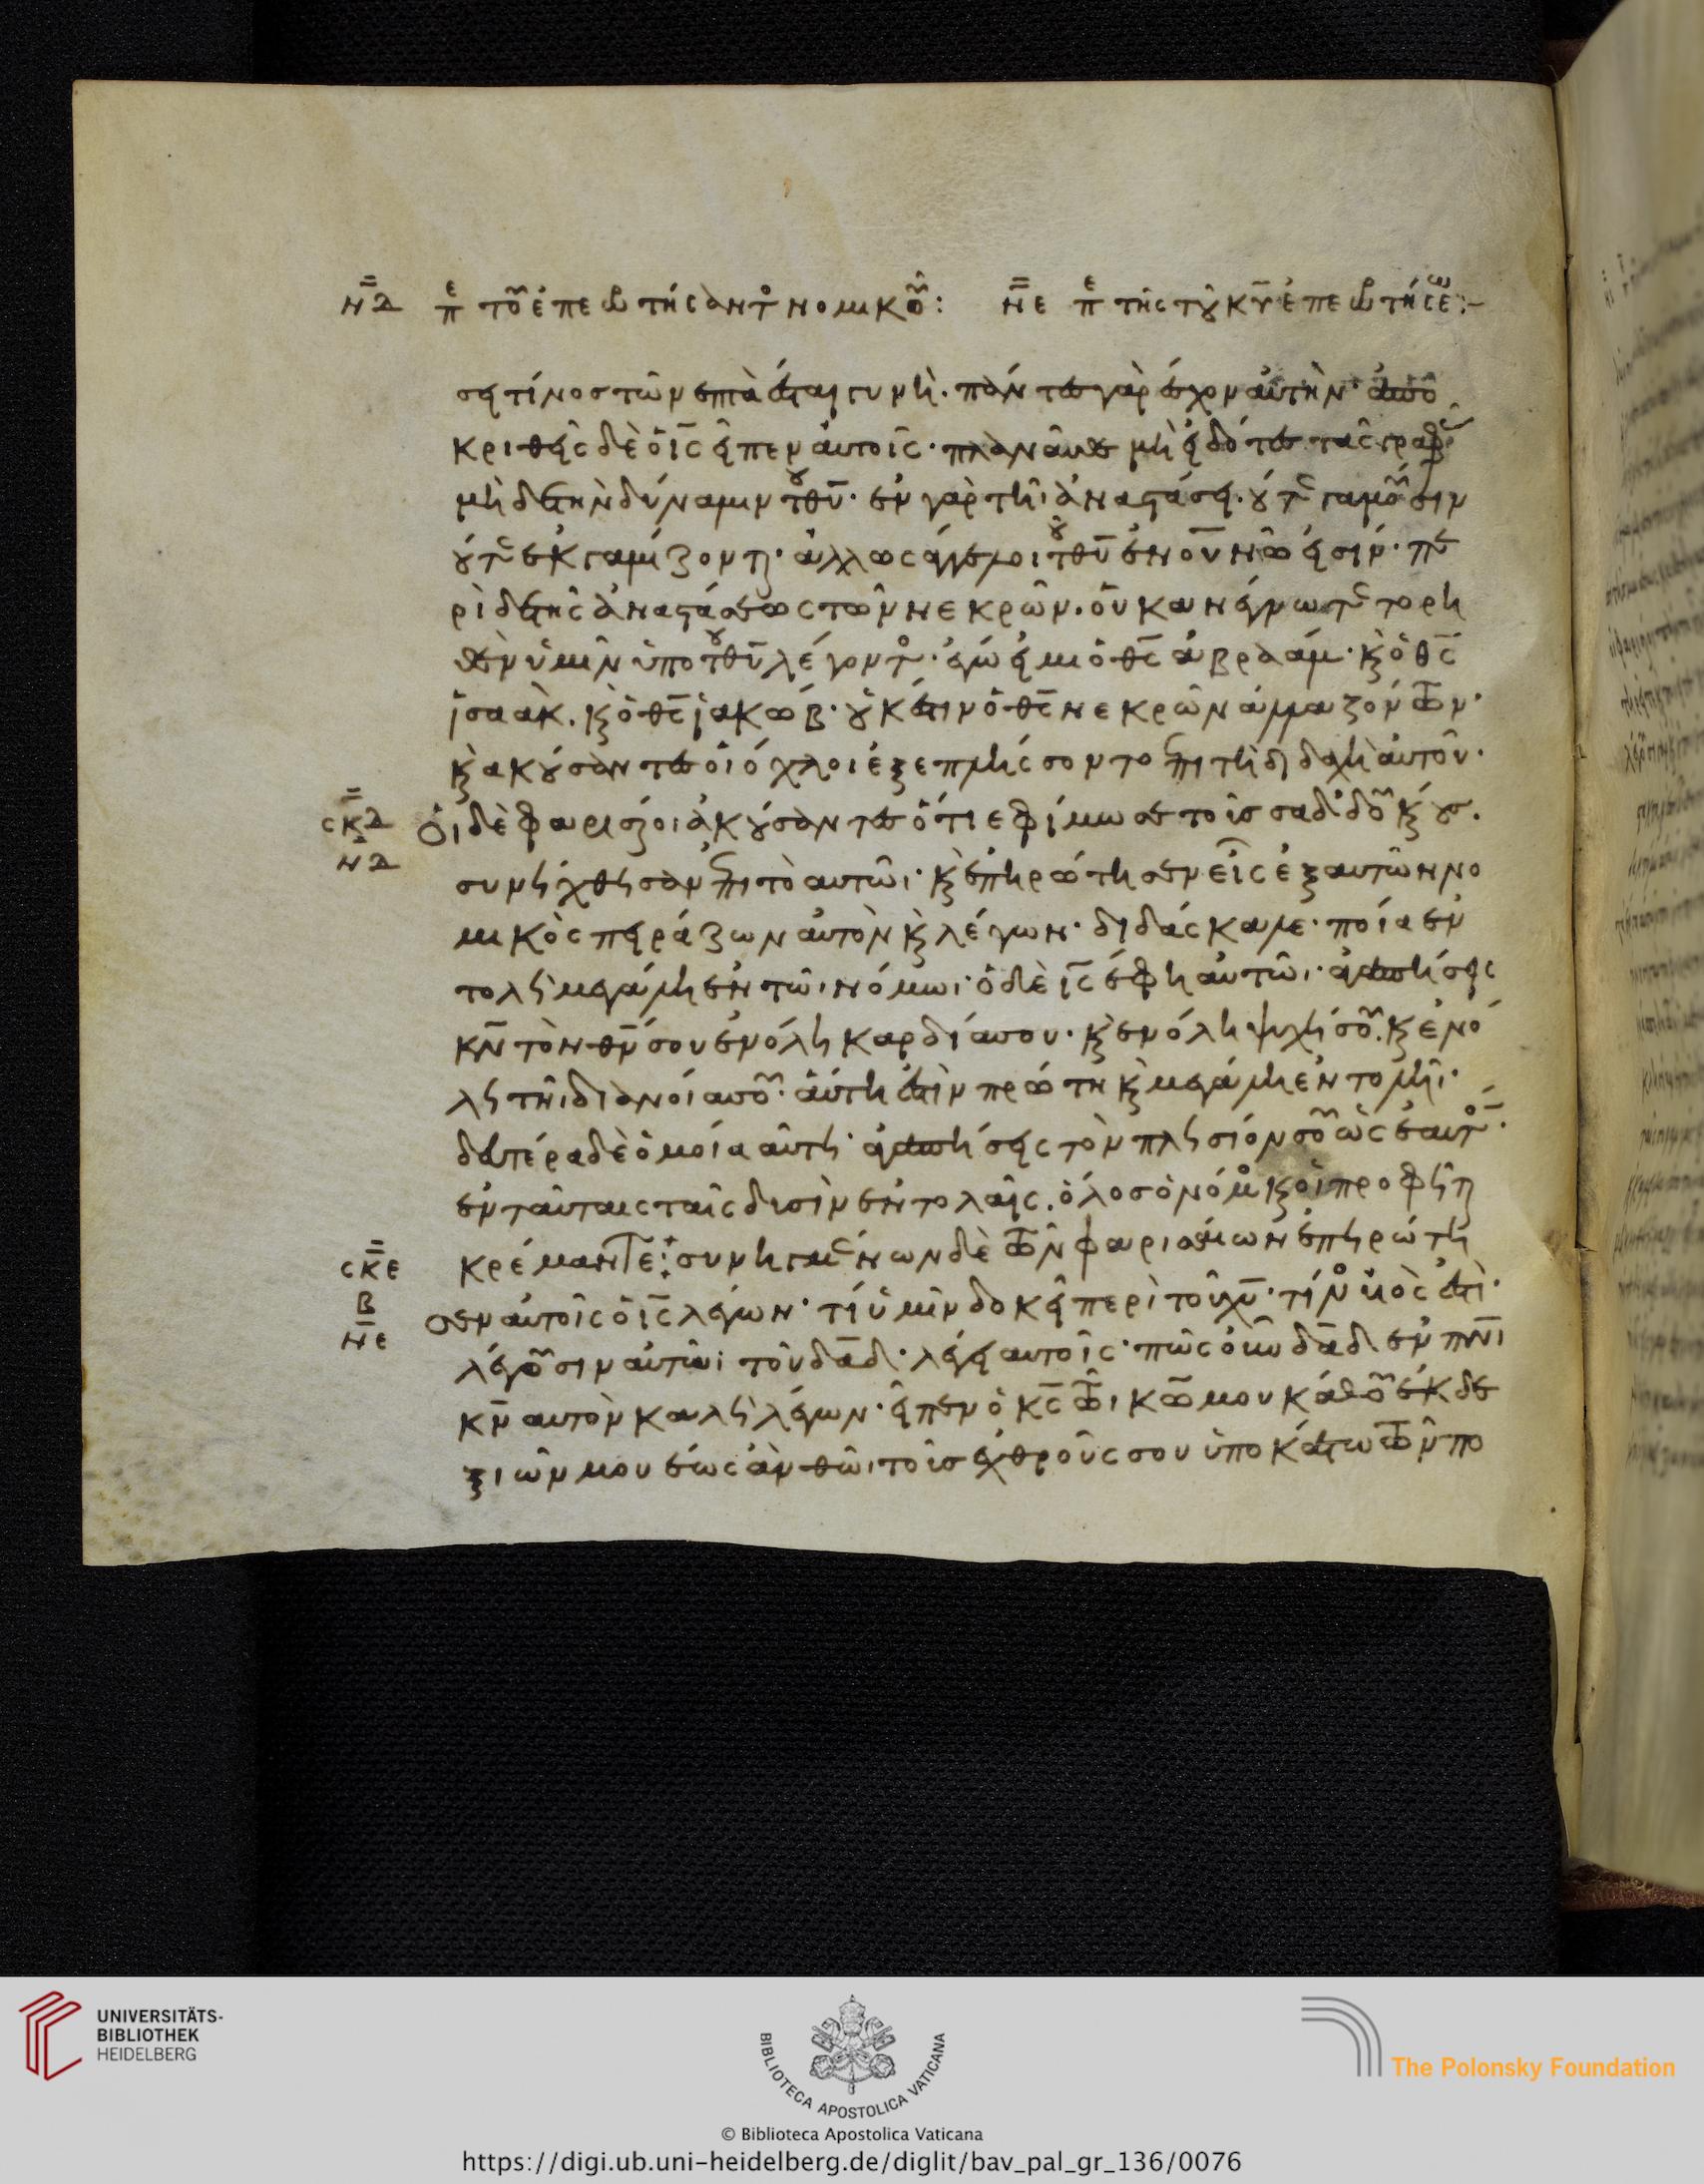 ΝΔ πε τοῦ ἐπερωτήσαντο νομικοῦ: ΝΕ πε τῆς τοῦ κυ ἐπερωτήσεω:-
σει τίνος τῶν ἑπτὰ ἔσται γυνή. πάντες γὰρ ἔσχον αὐτὴν· ἀπο
κριθεὶς δὲ ὁ ις εἶπεν αὐτοῖς· πλανᾶσθε μὴ εἰδότες τὰς γραφὰς
μὴδὲ τὴν δύναμιν του θυ· ἐν γὰρ τῆι ἀναστάσει· οὔτε γαμοῦσιν
οὔτε ἐκγαμίζονται· ἀλλ' ὡς ἄγγελοι του θυ ἐν ουνῶ εἰσίν· πε
ρὶ δὲ τῆς ἀναστάσεως τῶν νεκρῶν. οὐκ ἀνέγνωτε το ρη
θὲν ὑμῖν ὑπο του θυ λέγοντο· ἐγώ εἰμι ὁ θς ἀβραάμ· καὶ ὁ θς
ἰσαάκ. καὶ ὁ θς ἰακώβ· οὐκ ἔστιν ὁ θς νεκρῶν ἀλλα ζόντων·
καὶ ἀκούσαντες οἱ όχλοι ἐξεπλήσσοντο ἐπι τῆ διδαχῆ αὐτοῦ·
ΣΚΔ Οἱ δὲ φαρισαῖοι ἀκούσαντες ὅτι εφίμωσε τοῖς σαδδουκαίους.
ΝΔ συνήχθησαν ἐπι τὸ αυτῶι· καὶ ἐπηρώτησεν εἷς ἐξ αυτῶν νο
μικὸς πειράζων αὐτὸν καὶ λέγων· διδάσκαλε· ποία ἐν
τολὴ μεγάλη ἐν τῶι νόμωι· ὁ δὲ ις ἔφη αὐτῶι· ἀγαπήσεις
κν τὸν θν σου ἐν όλη καρδία σου· καὶ ἐν όλη ψυχῆ σοῦ. καὶ εν ό
λη τῆι διανοία σοῦ· αὕτη ἐστὶν πρώτη καὶ μεγάλη ἐντολῆι·
δευτέρα δὲ ὁμοία αὐτῆ· ἀγαπήσεις τὸν πλησίον σοῦ ὡς ἑαυτό·
ἐν ταύταις ταῖς δυσὶν ἐντολαῖς. ὅλος ὁ νόμο καὶ οἱ προφῆται
ΣΚΕ κρέμανται: συνηγμένων δὲ τῶν φαρισαίων ἐπηρώτη
Β
ΝΕ σεν αὐτοῖς ὁ ις λέγων· τί ὑμῖν δοκεῖ περὶ τοῦ χυ· τίνο υἱὸς ἐστὶ·
λέγουσιν αὐτῶι τοῦ δαδ· λέγει αυτοῖς· πῶς οὖν δαδ ἐν πνι
κν αυτὸν καλὴ λέγων· εἶπεν ὁ κς τῶι κω μου κάθου ἐκ δε
ξιῶν μου ἕως ἀν θῶι τοῖς ἐχθροῦς σου ὑποκάτω τῶν πο
UNIVERSITÄTS-
BIBLIOTHEK
HEIDELBERG
BIBLIOTECA APOSTOLICA VATICANA
The Polonsky Foundation
© Biblioteca Apostolica Vaticana
https://digi.ub.uni-heidelberg.de/diglit/bav_pal_gr_136/0076